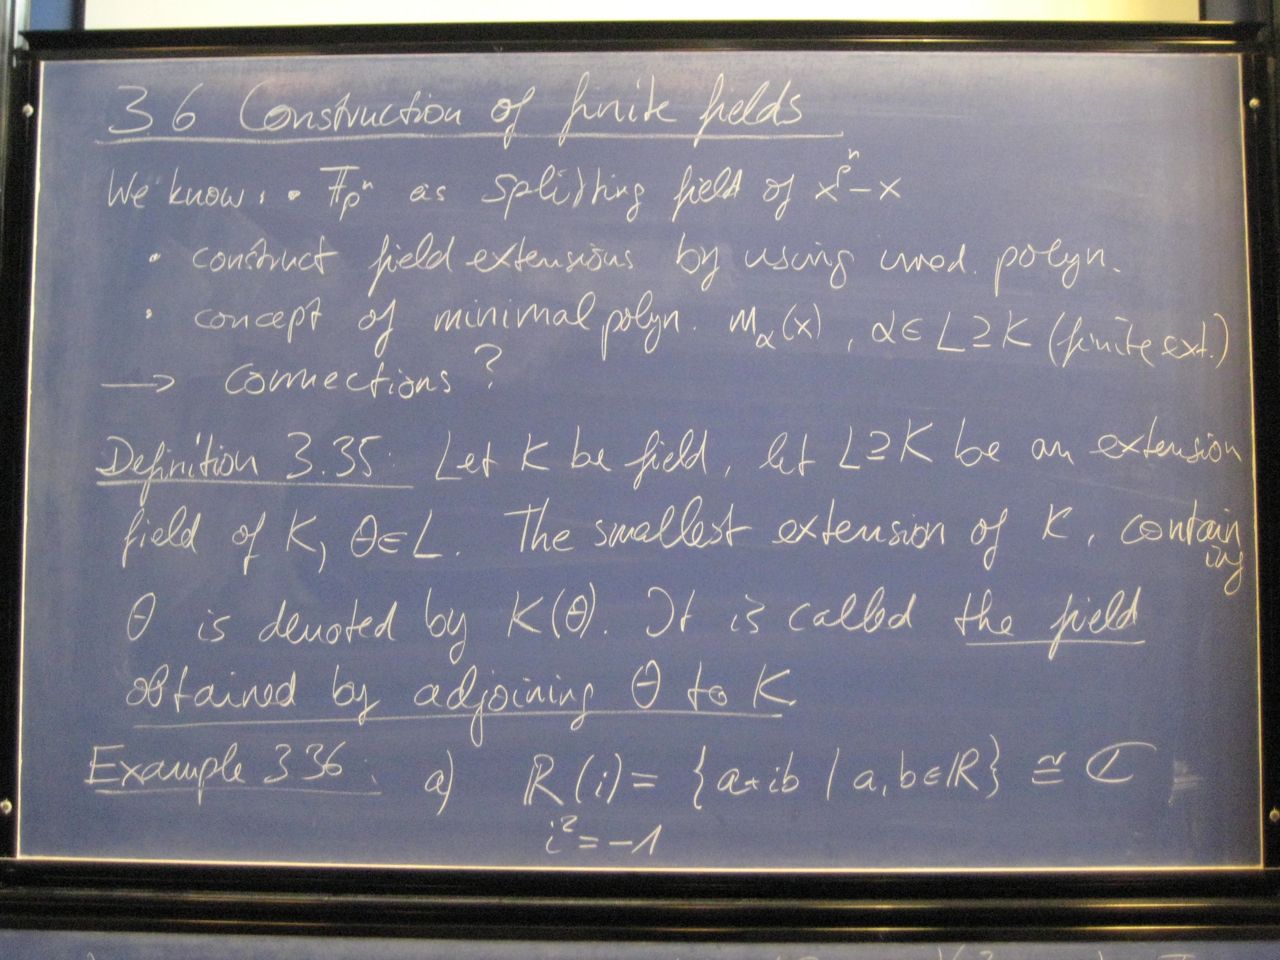 3 6 Construction of finite fields
We know: • 𝔽pⁿ as splitting field of x^pⁿ − x
• construct field extensions by using irred. polyn.
• concept of minimal polyn. m_α(x), α ∈ L ⊇ K (finite ext.)
→ connections?
Definition 3.35: Let K be field, let L ⊇ K be an extension
field of K, Θ ∈ L. The smallest extension of K, containing
Θ is denoted by K(Θ). It is called the field
obtained by adjoining Θ to K
Example 3 36: a) ℝ(i) = {a+ib / a, b ∈ ℝ} ≅ ℂ
i² = −1